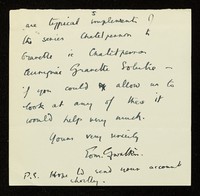 are typical implements of
the series Chatelperron to
Gravette is Chatelperron
Gravette
if you could allow us to
look at any of these it
would help very much.
Yours very sincerely
Tom.
P.S. Hope to send your account
shortly.